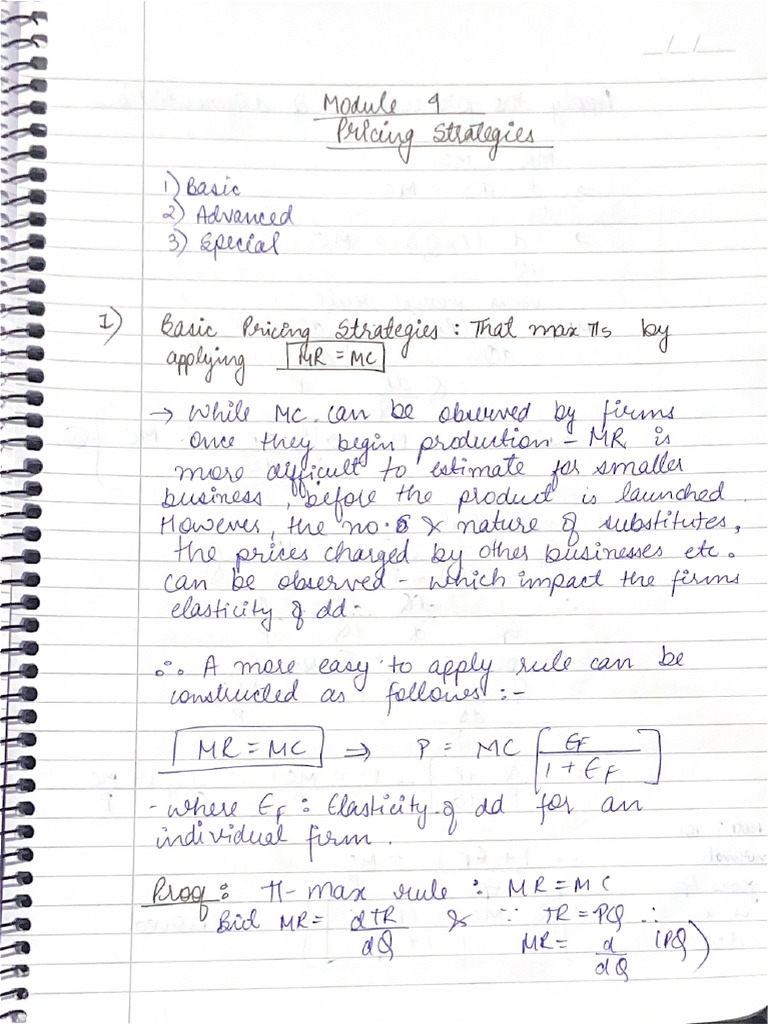 __/__/__
Module 4
Pricing Strategies
1) Basic
2) Advanced
3) Special
1) Basic Pricing Strategies : That max πs by
applying MR = MC
→ While MC can be observed by firms
once they begin production – MR is
more difficult to estimate for smaller
business, before the product is launched.
However, the no. & nature of substitutes,
the prices charged by other businesses etc.
can be observed – which impact the firms
elasticity of dd.
∴ A more easy to apply rule can be
constructed as follows :-
MR = MC ⇒ P = MC [EF / 1 + EF]
- where EF : Elasticity of dd for an
individual firm.
Proof : π-max rule : MR = MC
But MR = dTR/dQ & ∵ TR = PQ ∴
MR = d/dQ (PQ)